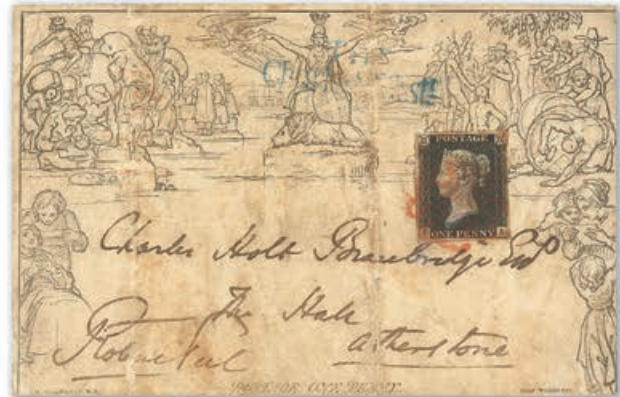 POSTAGE
ONE PENNY
Charles Holt Bracebridge Esqr
The Hall
Atherstone
Robert Peel
POSTAGE ONE PENNY.